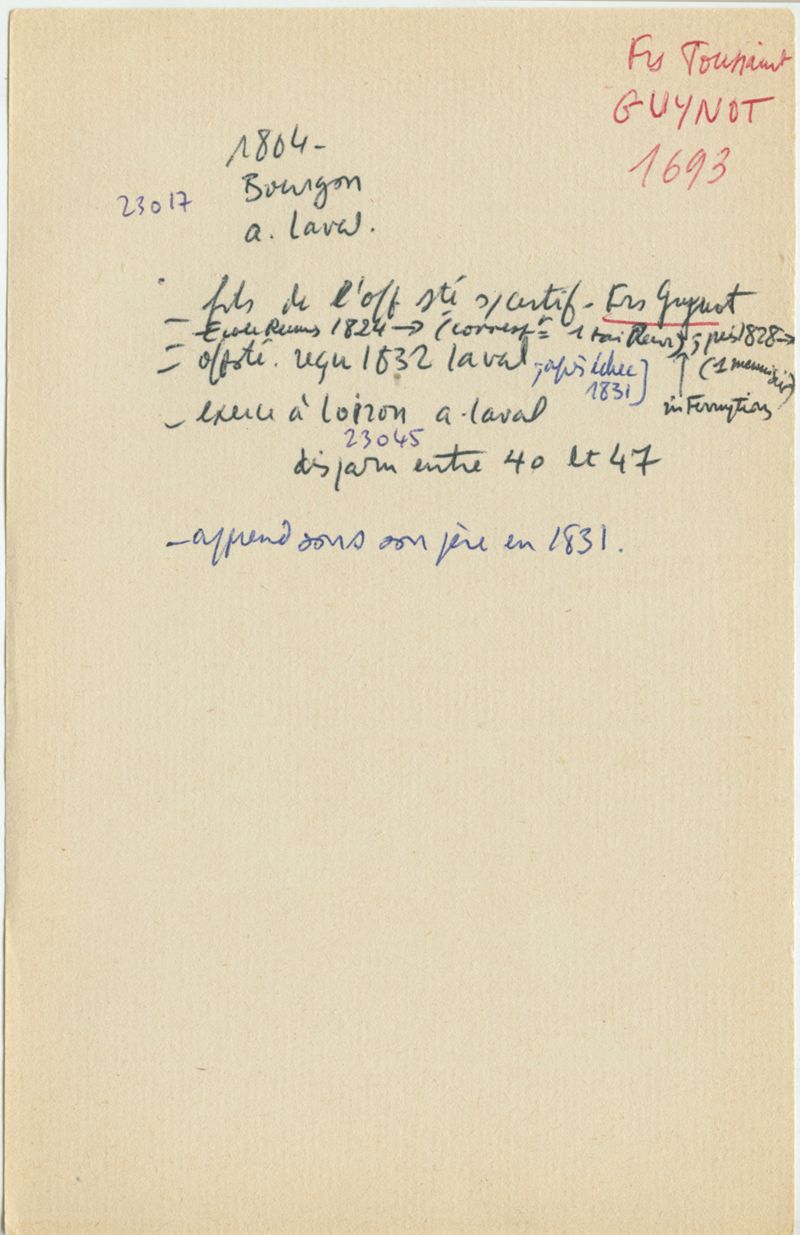 Frs Toussaint
GUYNOT
1693
1804-
23017 Bourgon
a. Laval.
- fils de l'off sté s/certif - Frs Guynot
- Ecole Rennes 1824 → (corresp = 1 tailleur) ; puis 1828 →
(1 menuisier)
interruption
= offsté. reçu 1832 Laval ; après échec
1831)
- exerce à Loiron a. Laval
23045
disparu entre 40 et 47
- apprend sous son père en 1831.